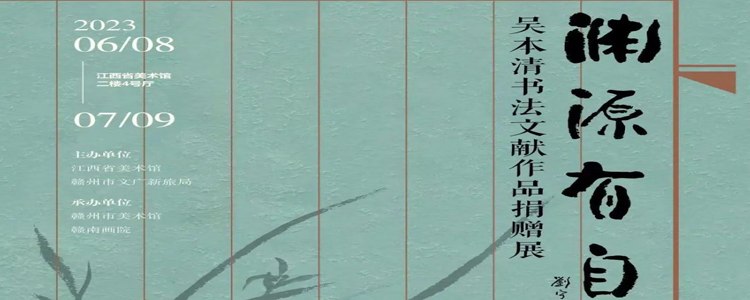 渊源有自
吴本清书法文献作品捐赠展
2023
06/08
江西省美术馆
二楼4号厅
07/09
主办单位
江西省美术馆
赣州市文广新旅局
承办单位
赣州市美术馆
赣南画院